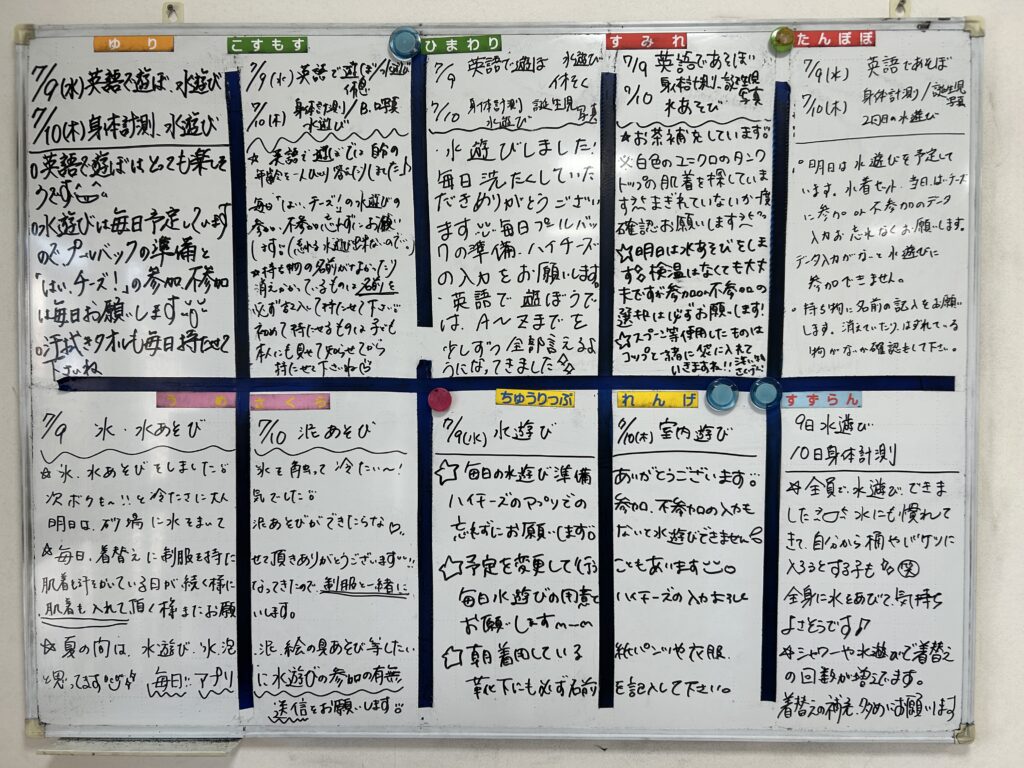 ゆり
7/9(水)英語で遊ぼ、水遊び
7/10(木)身体計測、水遊び
○英語で遊ぼはとても楽しそ
うです
○水遊びは毎日予定しています
のでプールバックの準備と
「はい、チーズ!」の参加、不参加
は毎日お願いします
○汗拭きタオルも毎日持たせて
下さいね
こすもす
7/9(水)英語で遊ぼ/水遊び
休憩
7/10(木)身体計測/B.D写真
水遊び
☆英語で遊びでは自分の
年齢を一人ひとり答えたりしました♪
毎日「はい、チーズ!」の水遊びの
参加・不参加忘れずにお願い
します。(忘れる水遊び出来ないので…)
☆持ち物の名前がなかったり
消えかかっているものは名前を
必ずお入して持たせて下さい。
初めて持たせるものは子ども
本人にも見せて知らせてから
持たせて下さいね
ひまわり
7/9 英語で遊ぼ 水遊び
体そく
7/10 身体計測 誕生児
水遊び 写真
・水遊びしました!
毎日洗たくしていた
だきありがとうござい
ます。毎日プールバック
の準備、ハイチーズ
の入力をお願いします。
・英語で遊ぼうで
は、A〜Zまでを
少しずつ全部言えるよ
うになってきました☆
すみれ
7/9 英語であそぼい
7/10 身体計測、誕生児
写真
水あそび
☆お茶補充しています。
父白色のユニクロのタンク
トップの肌着を探していま
す。まぎれていないか一度
確認お願いします
☆明日は水あそびをしま
す。検温はなくても大丈
夫ですが参加or不参加の
選択は必ずお願いします!
☆スプーン等使用したものは
コップと一緒に袋に入れて
いきますね!!
たんぽぽ
7/9(水) 英語であそぼ
7/10(木) 身体計測/誕生児
写真
2回目の水遊び
○明日は水遊びを予定して
います。水着セット、当日はい、チーズ
に参加or不参加のデータ
入力お忘れなくお願いします。
データ入力がないと水遊びに
参加できません。
○持ち物に名前の記入をお願い
します。消えていたり、はずれている
物がないか確認もして下さい。
うめ さくら
7/9 氷・水あそび 7/10 泥あそび
☆氷、水あそびをしました 氷を触って冷たい〜!
次ボクも〜!!と冷たさに大人気でした
明日は、砂場に水をまいて泥あそびができたらな♡
☆毎日、着替えに制服を持たせて頂きありがとうございます!!
肌着も汗をかいている日が続く様になってきたので、制服と一緒に
肌着も入れて頂く様またお願いします。
☆夏の間は、水遊び、氷、泥、泥絵の具あそび等したい
と思ってます 毎日!!アプリに水遊びの参加の有無
送信をお願いします
ちゅうりっぷ れんげ
7/9(水)水遊び 7/10(木)室内遊び
☆毎日の水遊び準備ありがとうございます
ハイチーズのアプリでの参加、不参加の入力も
忘れずにお願いします。ないと水遊びできません
☆予定を変更して行うこともあります
毎日水遊びの用意とハイチーズの入力よろしく
お願いしますm—m
☆朝着用している紙パンツや衣服、
靴下にも必ず名前を記入して下さい。
すずらん
9日水遊び
10日身体計測
☆全員で、水遊びできま
した 水にも慣れて
きて、自分から桶やバケツに
入ろうとする子も 笑
全身に水をあびて、気持ち
よさそうです♪
☆シャワーや水遊びで着替え
の回数が増えてます。
着替えの補充、多めにお願いします